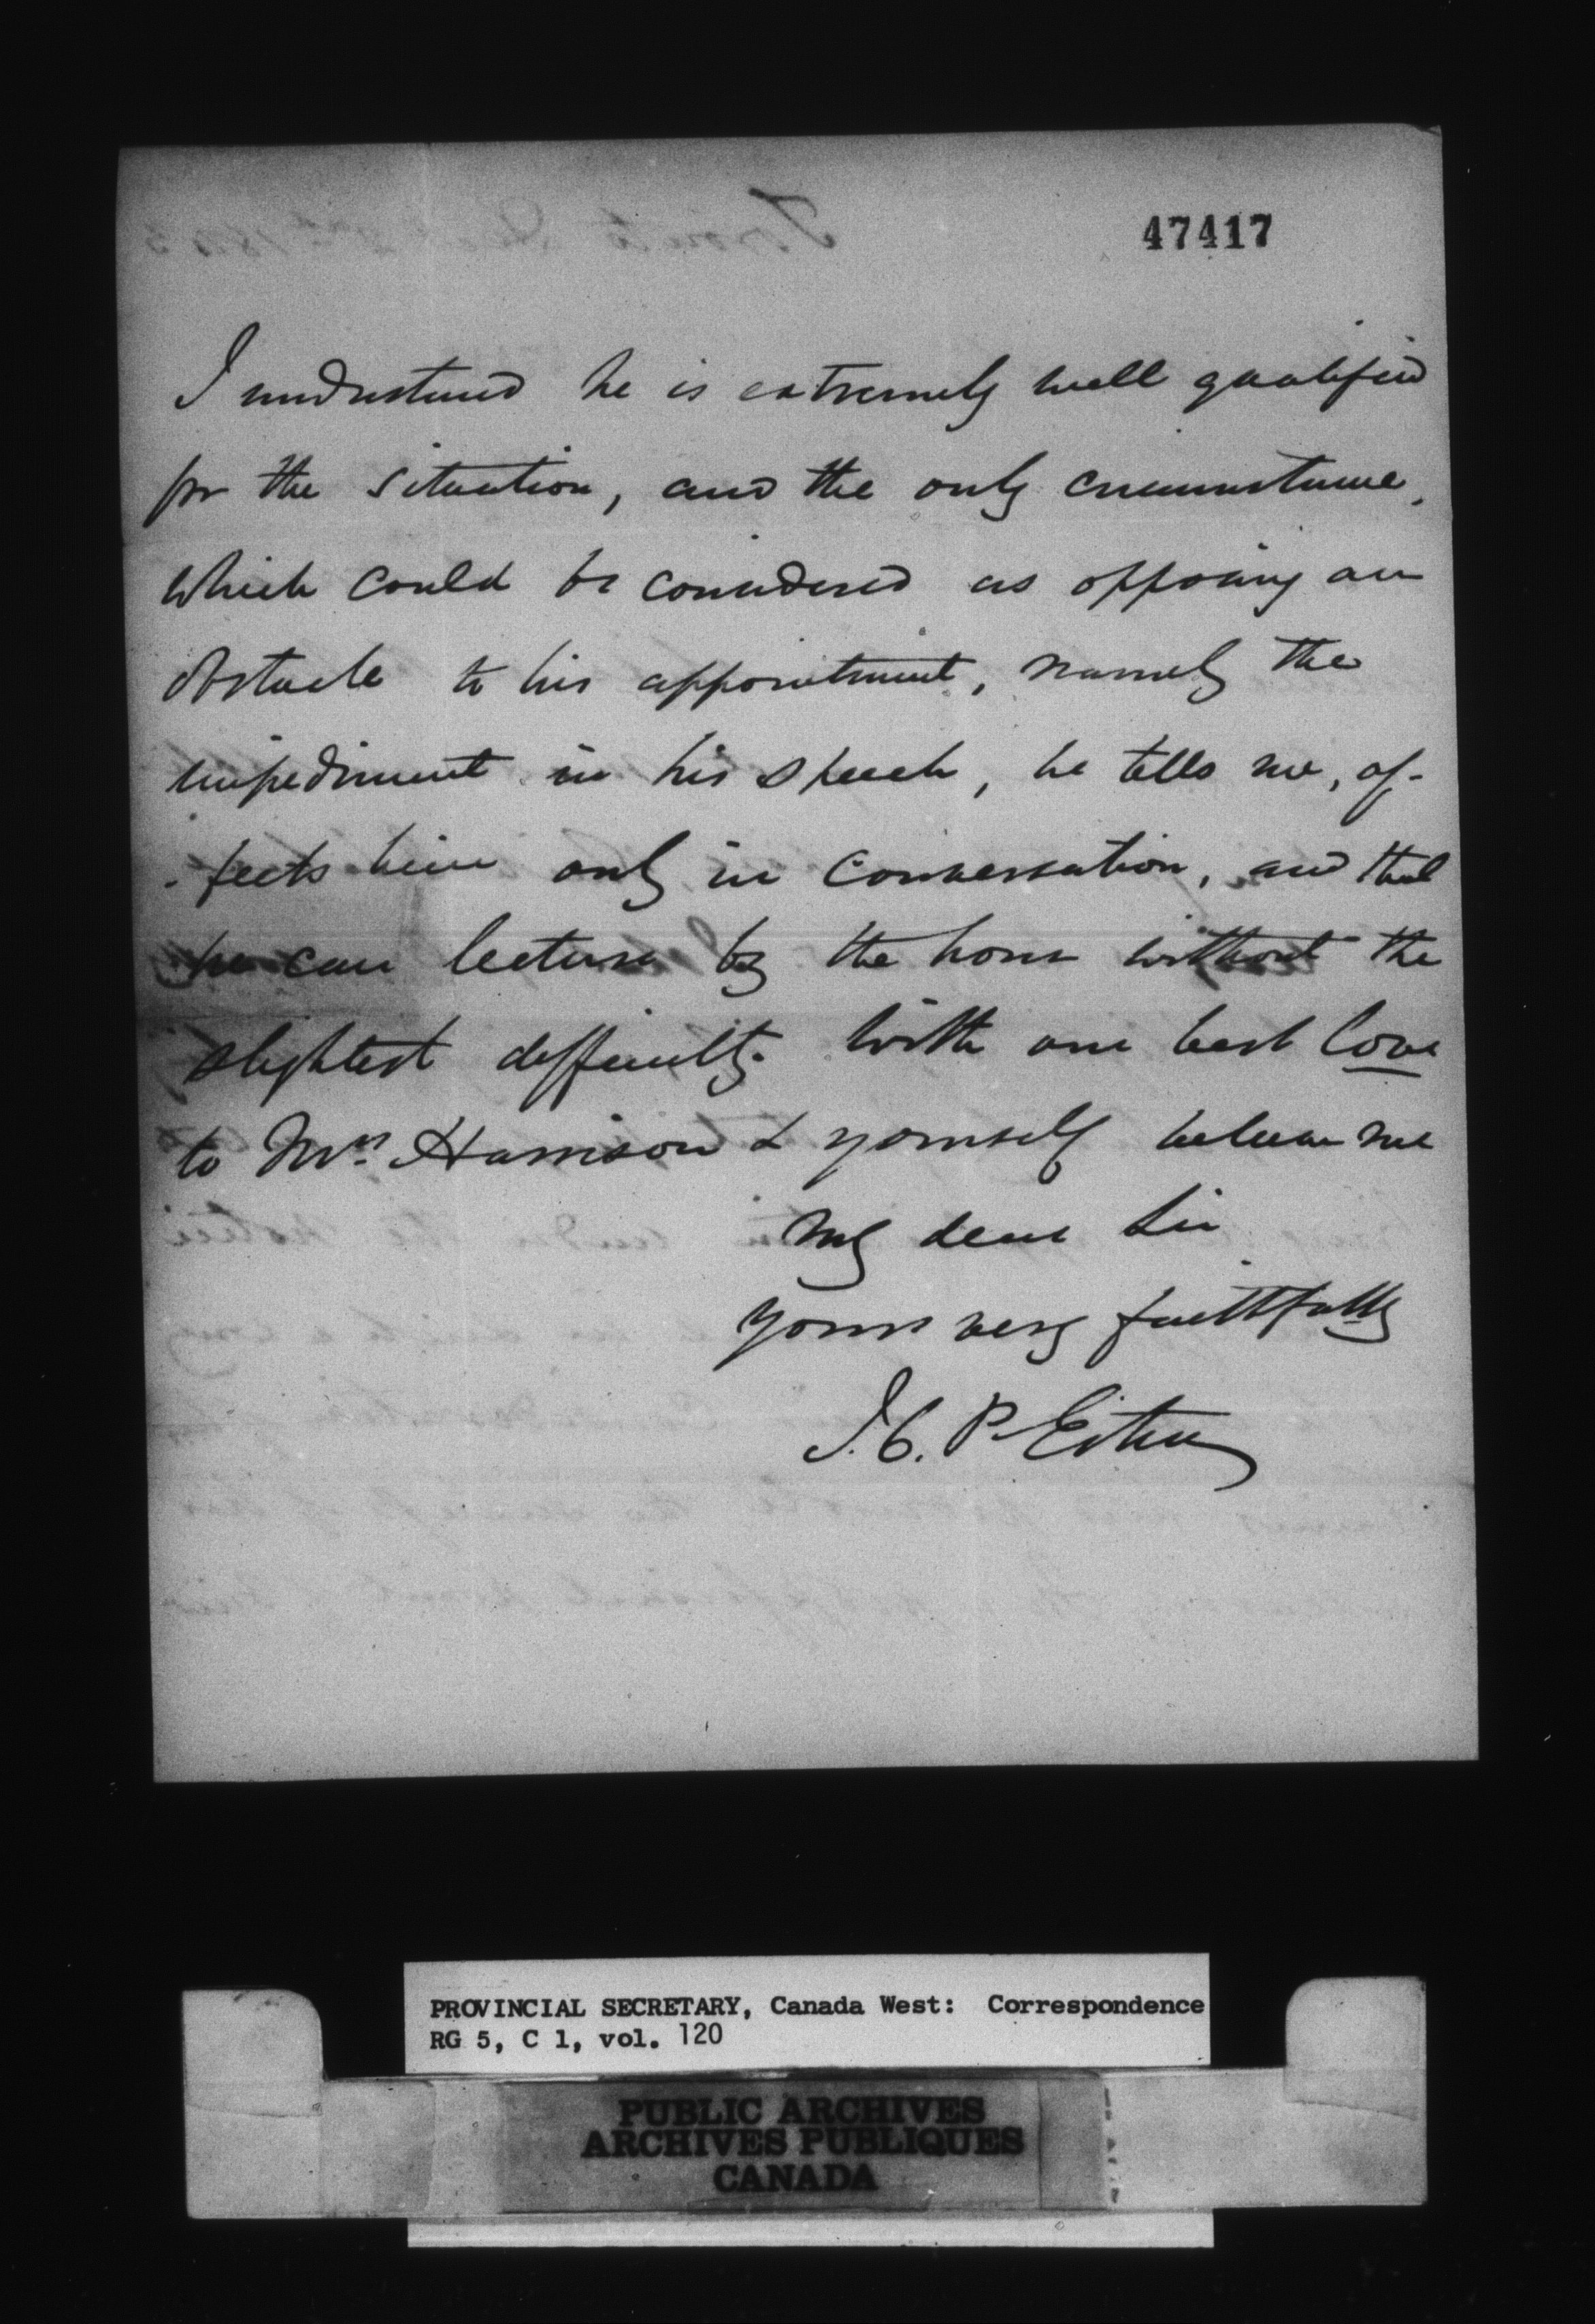 47417
I understand he is extremely well qualified
for the situation, and the only circumstance,
which could be considered as opposing an
obstacle to his appointment, namely the
impediment in his speech, he tells me, af-
-fects him only in conversation, and that
he can lecture by the hour without the
slightest difficulty. With our best love
to Mrs. Harrison & yourself believe me
My dear Sir
yours very faithfully
J. C. P. Esten
PROVINCIAL SECRETARY, Canada West: Correspondence
RG 5, C 1, vol. 120
PUBLIC ARCHIVES
ARCHIVES PUBLIQUES
CANADA